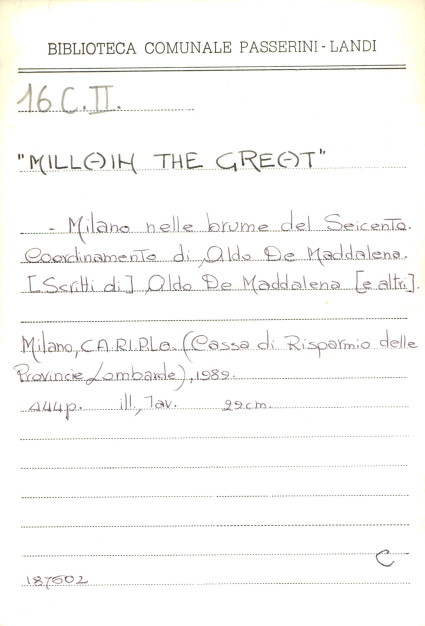 BIBLIOTECA COMUNALE PASSERINI - LANDI
16 C.II.
"MILLAIN THE GREAT"
- Milano nelle brume del Seicento.
Coordinamento di Aldo De Maddalena.
[Scritti di] Aldo De Maddalena [e altri].
Milano, CA.RI.P.Lo. (Cassa di Risparmio delle
Provincie Lombarde), 1989.
444p. ill., Tav. 29cm.
C
187602